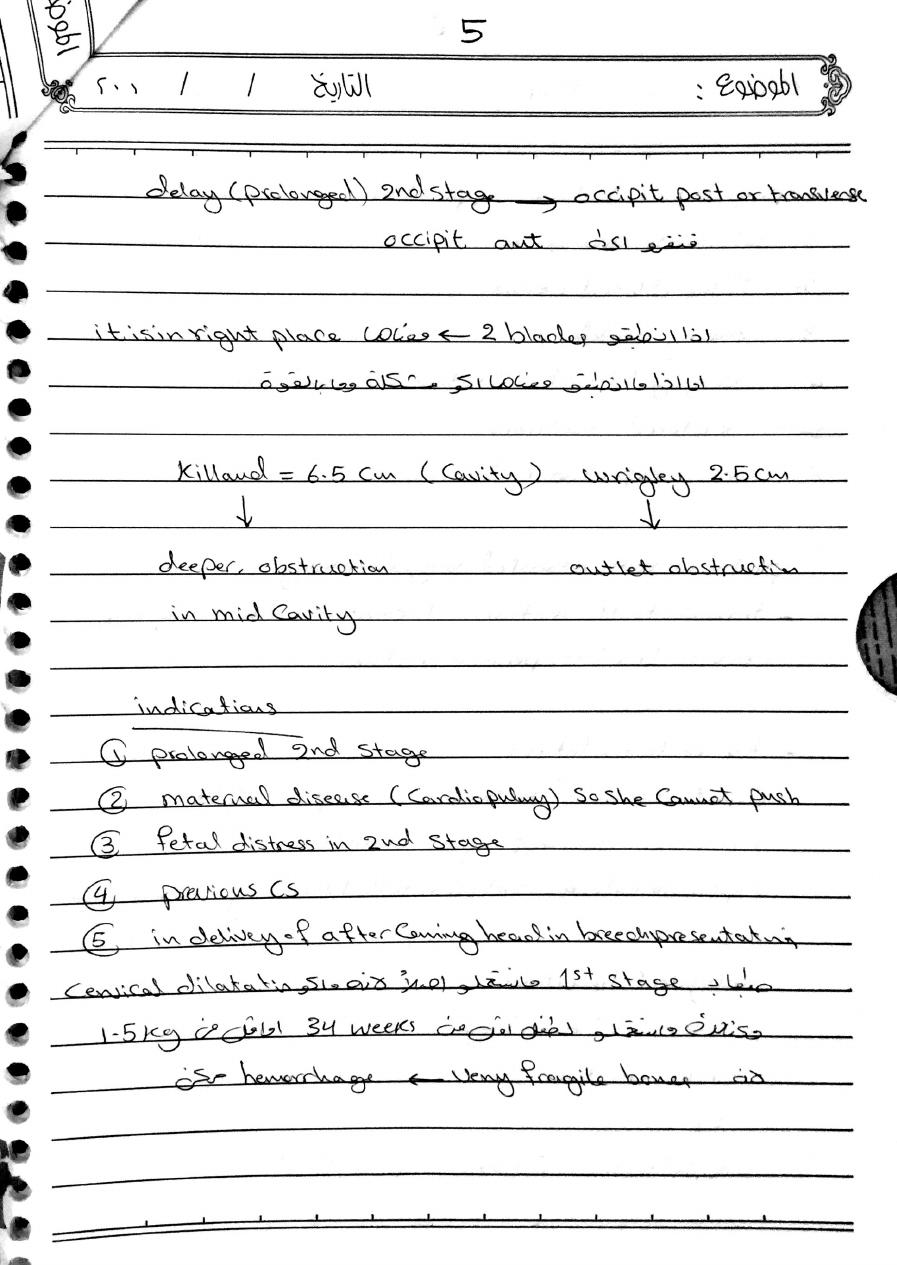 الموضوع
5
الموضوع : التاريخ / / ٢٠٠١
delay (prolonged) 2nd stage → occipit post or transverse
occipit ant
it is in right place معناها ← 2 blades اذا انطبقو
اما اذا ما انطبقو معناها اكو مشكلة وما بالقوة
Killand = 6.5 cm (Cavity) wrigley 2.5 cm
↓ ↓
deeper, obstruction outlet obstructin
in mid Cavity
indications
① prolonged 2nd Stage
② maternal disease (Cardiopulmy) So She Cannot push
③ fetal distress in 2nd Stage
④ previous CS
⑤ in delivey of after Coming head in breech presentatin
1st stage ما نستخدمو ابداً لانه ماكو Cervical dilatatin
ما نستخدمو لطفل اقل من 34 weeks او اقل من 1.5 kg
لانه very fragile bones ← hemorrhage ممكن